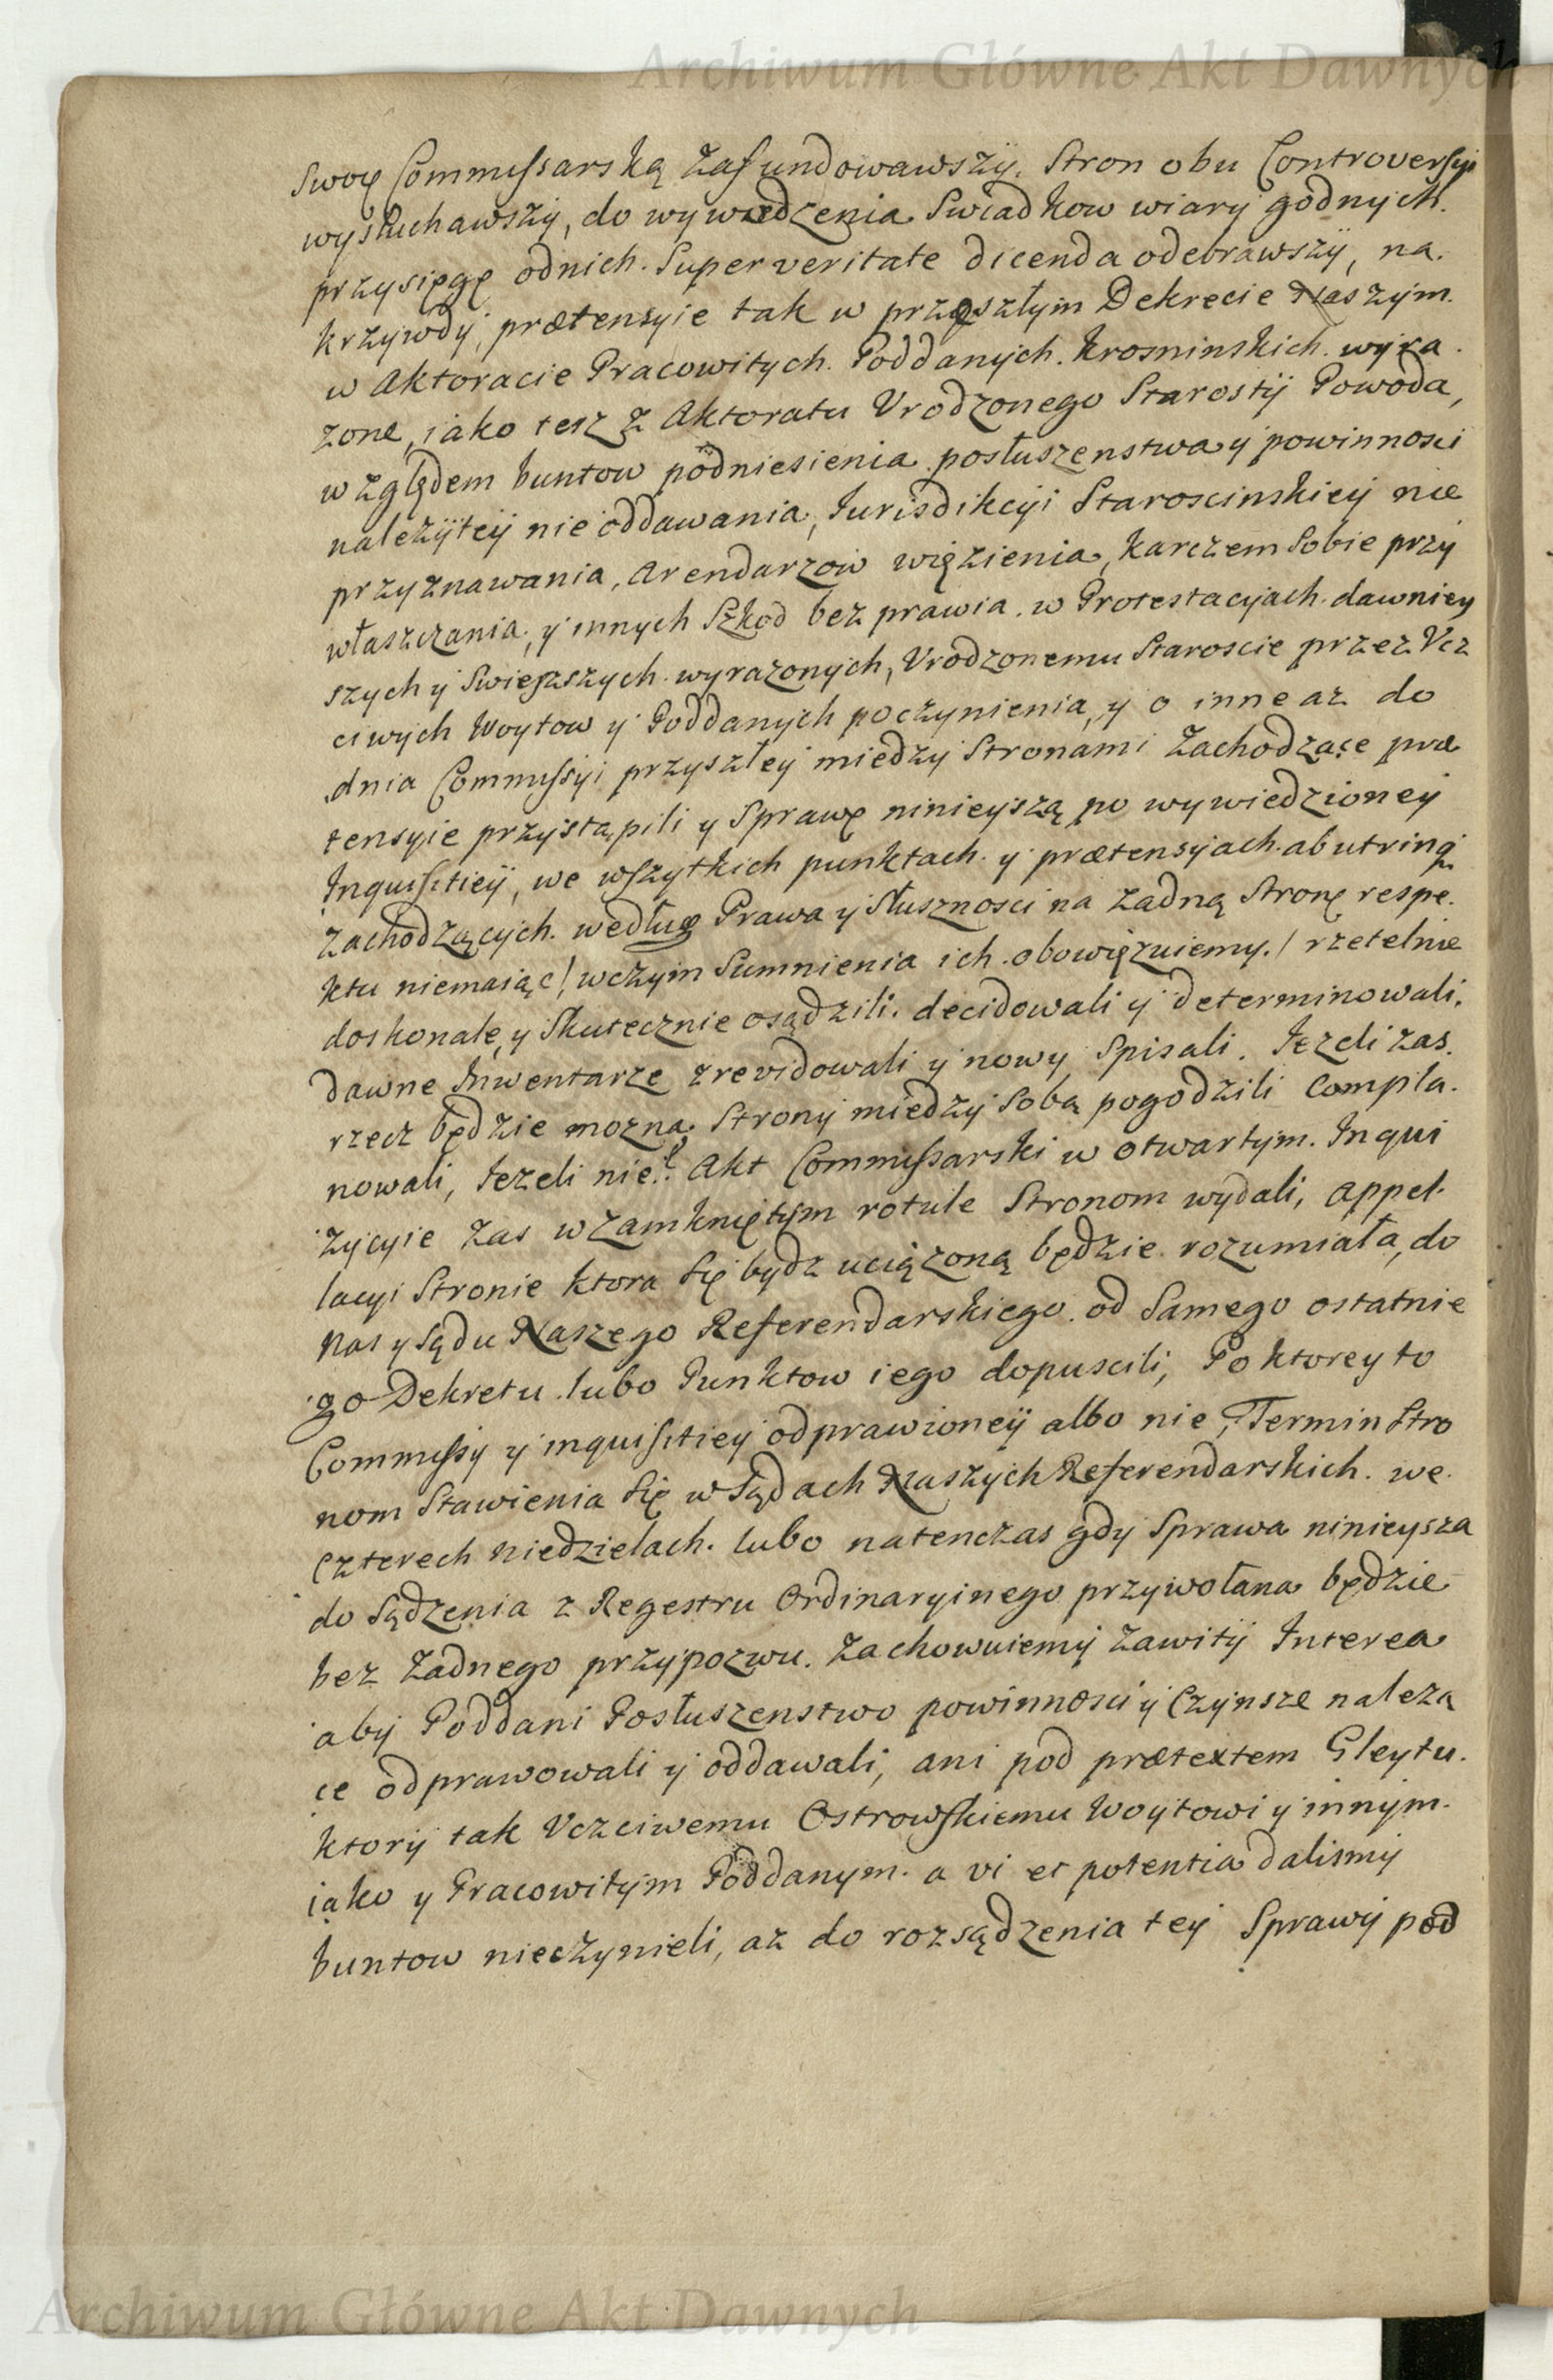 Archiwum Główne Akt Dawnych
Swoię Commissarską zafundowawszy, Stron obu Controversyi
wysłuchawszy, do wywiedzenia Swiadkow wiary godnych.
przysięgę odnich. Super veritate dicenda odebrawszy, na.
krzywdy, prætensyie tak w przeszłym Dekrecie Naszym.
w Aktoracie Pracowitych. Poddanych. Krosninskich. wyra.
zone, iako tesz z Aktoratu Vrodzonego Starosty Powoda,
względem buntow podniesienia posłuszenstwa y powinnosci
nalezytey nie oddawania, Jurisdikcyi Staroscinskiey nie
przyznawania, Arendarzow więzienia, Karczem Sobie przy
właszczania, y innych Szkod bez prawia. w Protestacyjach. dawniey
szych y Swieższych. wyrazonych, Vrodzonemu Staroscie przez Vcz
ciwych Woytow y Poddanych poczynienia, y o inne az do
dnia Commissyi przyszłey miedzy Stronami zachodzące præ
tensyie przystąpili y Sprawę ninieyszą po wywiedzioney
Inquisitiey, we wszytkich punktach. y prætensyjach. ab utrinq
zachodzących. według Prawa y Słusznosci na zadną Stronę respe.
ktu niemaiąc / wczym Sumnienia ich. obowięzuiemy. / rzetelnie
doskonale, y Skutecznie osądzili. decidowali y determinowali,
dawne Inwentarze zrevidowali y nowy Spisali. Jezeli zas.
rzecz będzie mozna, Strony miedzy Sobą pogodzili Compla.
nowali, Jezeli nie? Akt Commissarski w otwartym. Inqui
zycyie zas w zamkniętym rotule Stronom wydali, appel.
lacyi Stronie ktora się bydz uciązoną będzie rozumiała, do
Nas y Sądu Naszego Referendarskiego. od Samego ostatnie
go Dekretu lubo Punktow iego dopuscili, Po ktorey to
Commissy y inquisitiey odprawioney albo nie, Termin Stro
nom Stawienia się w Sądach Naszych Referendarskich. we.
czterech niedzielach. lubo natenczas gdy Sprawa ninieysza
do Sądzenia z Regestru Ordinaryinego przywołana będzie
bez zadnego przypozwu. Zachowuiemy zawity Interea
aby Poddani Posłuszenstwo powinnosci y Czynsze nalezą
ce odprawowali y oddawali, ani pod prætextem Gleytu.
ktory tak Vczciwemu Ostrowskiemu Woytowi y innym.
iako y Pracowitym Poddanym. a vi et potentia dalismy
buntow nieczynieli, az do rozsądzenia tey Sprawy pod
Archiwum Główne Akt Dawnych